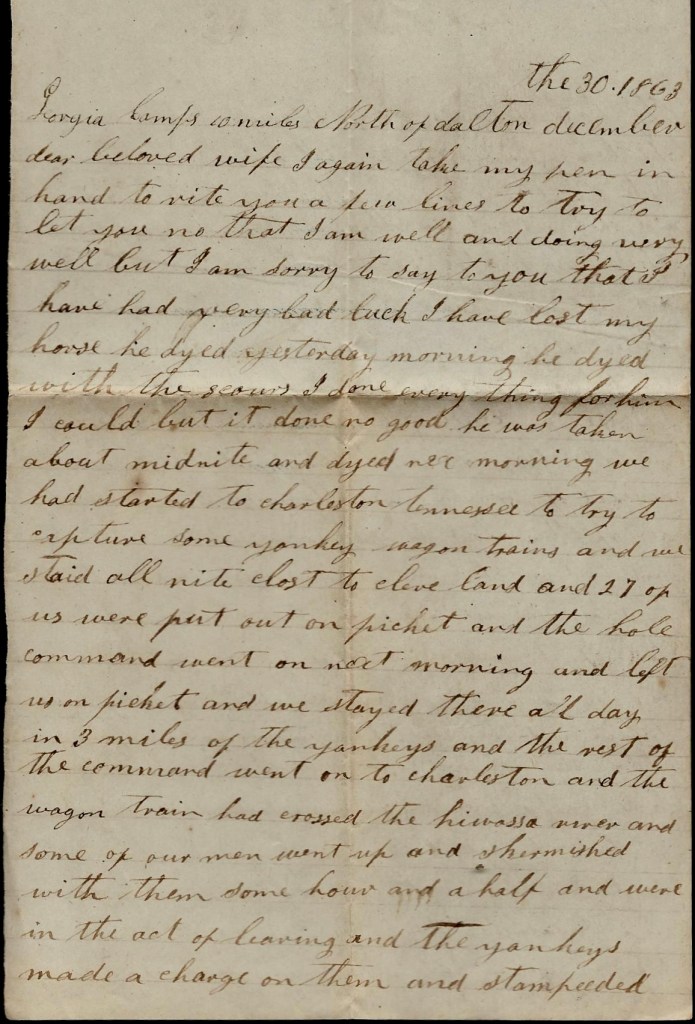 the 30. 1863
Gorgia Camps 10 miles North of dalton december
dear beloved wife I again take my pen in
hand to rite you a few lines to try to
let you no that I am well and doing very
well but I am sorry to say to you that I
have had very bad luck I have lost my
horse he dyed yesterday morning he dyed
with the scours I done every thing for him
I could but it done no good he was taken
about midnite and dyed nex morning we
had started to charleston tennessee to try to
capture some yankey wagon trains and we
staid all nite clost to cleve land and 27 of
us were put out on picket and the hole
command went on next morning and left
us on picket and we stayed there all day
in 3 miles of the yankeys and the rest of
the command went on to charleston and the
wagon train had crossed the hiwassa river and
some of our men went up and skermished
with them some hour and a half and were
in the act of leaving and the yankeys
made a charge on them and stampeeded